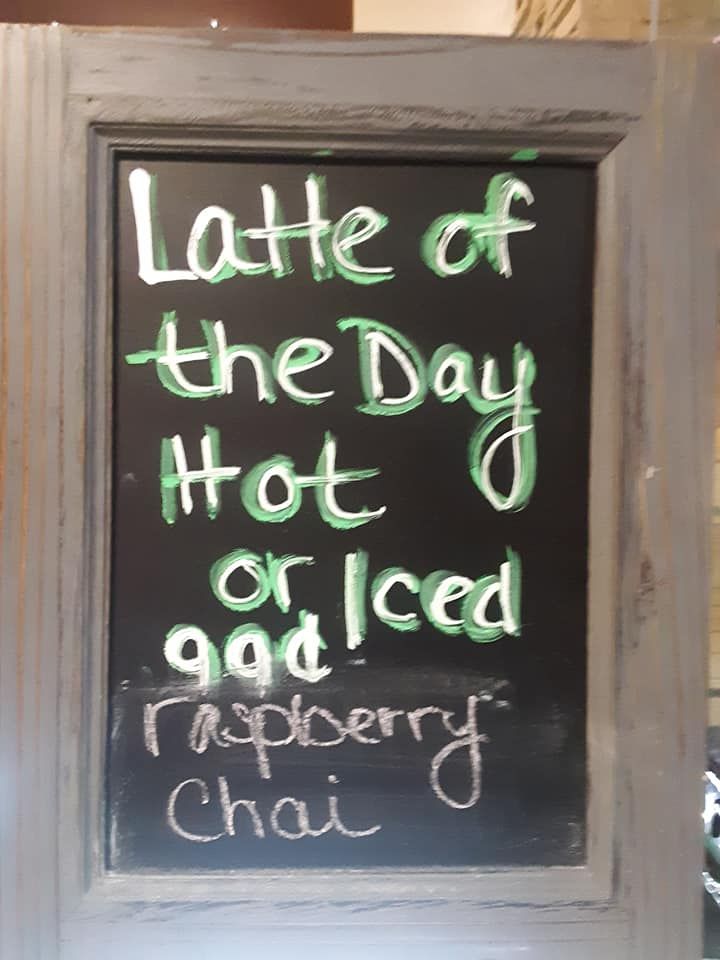 Latte of
the Day
Hot
or Iced
99¢
raspberry
Chai